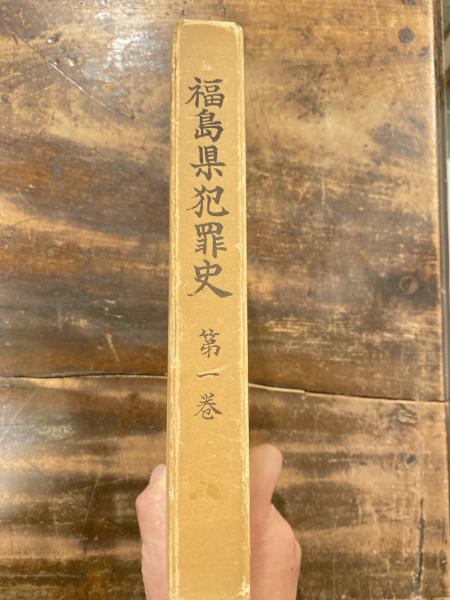 福島県犯罪史
第一巻